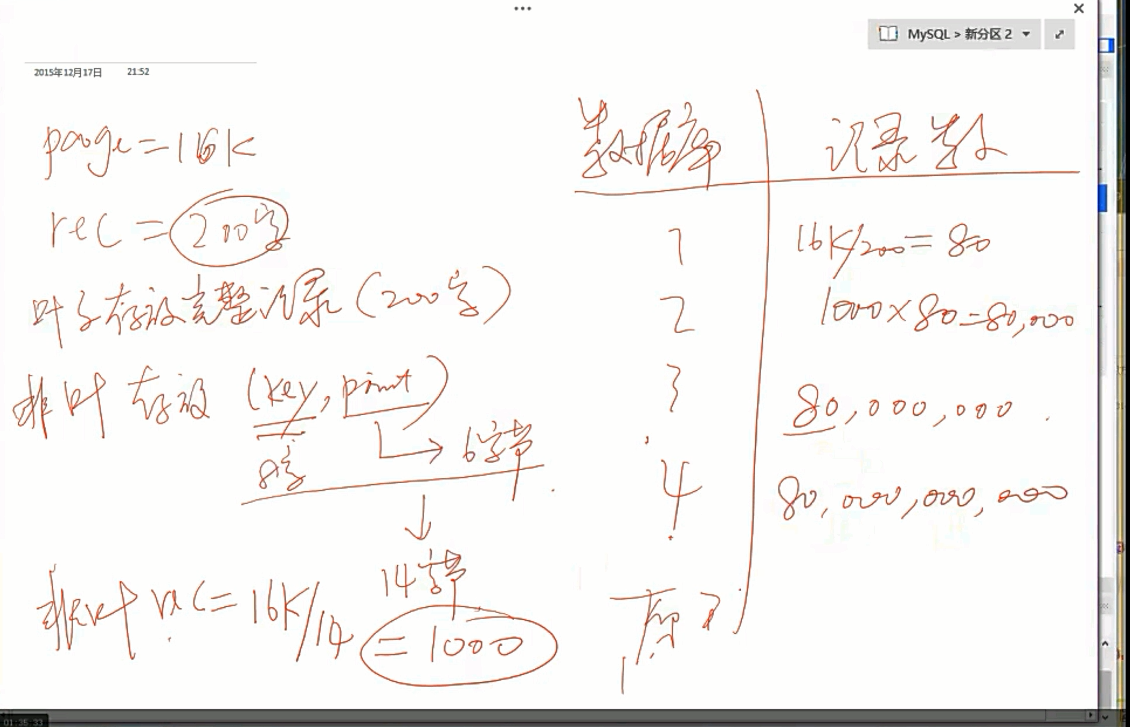 MySQL > 新分区 2
2015年12月17日 21:52
page=16K
rec = 200字
叶子存放完整记录(200字)
非叶 存放 (key, point)
8字
6字节
14字节
非叶 rec = 16K/14 = 1000
数据库 记录数
1 16K/200 = 80
2 1000×80=80,000
3 80,000,000
4 80,000,000,000
01:35:33